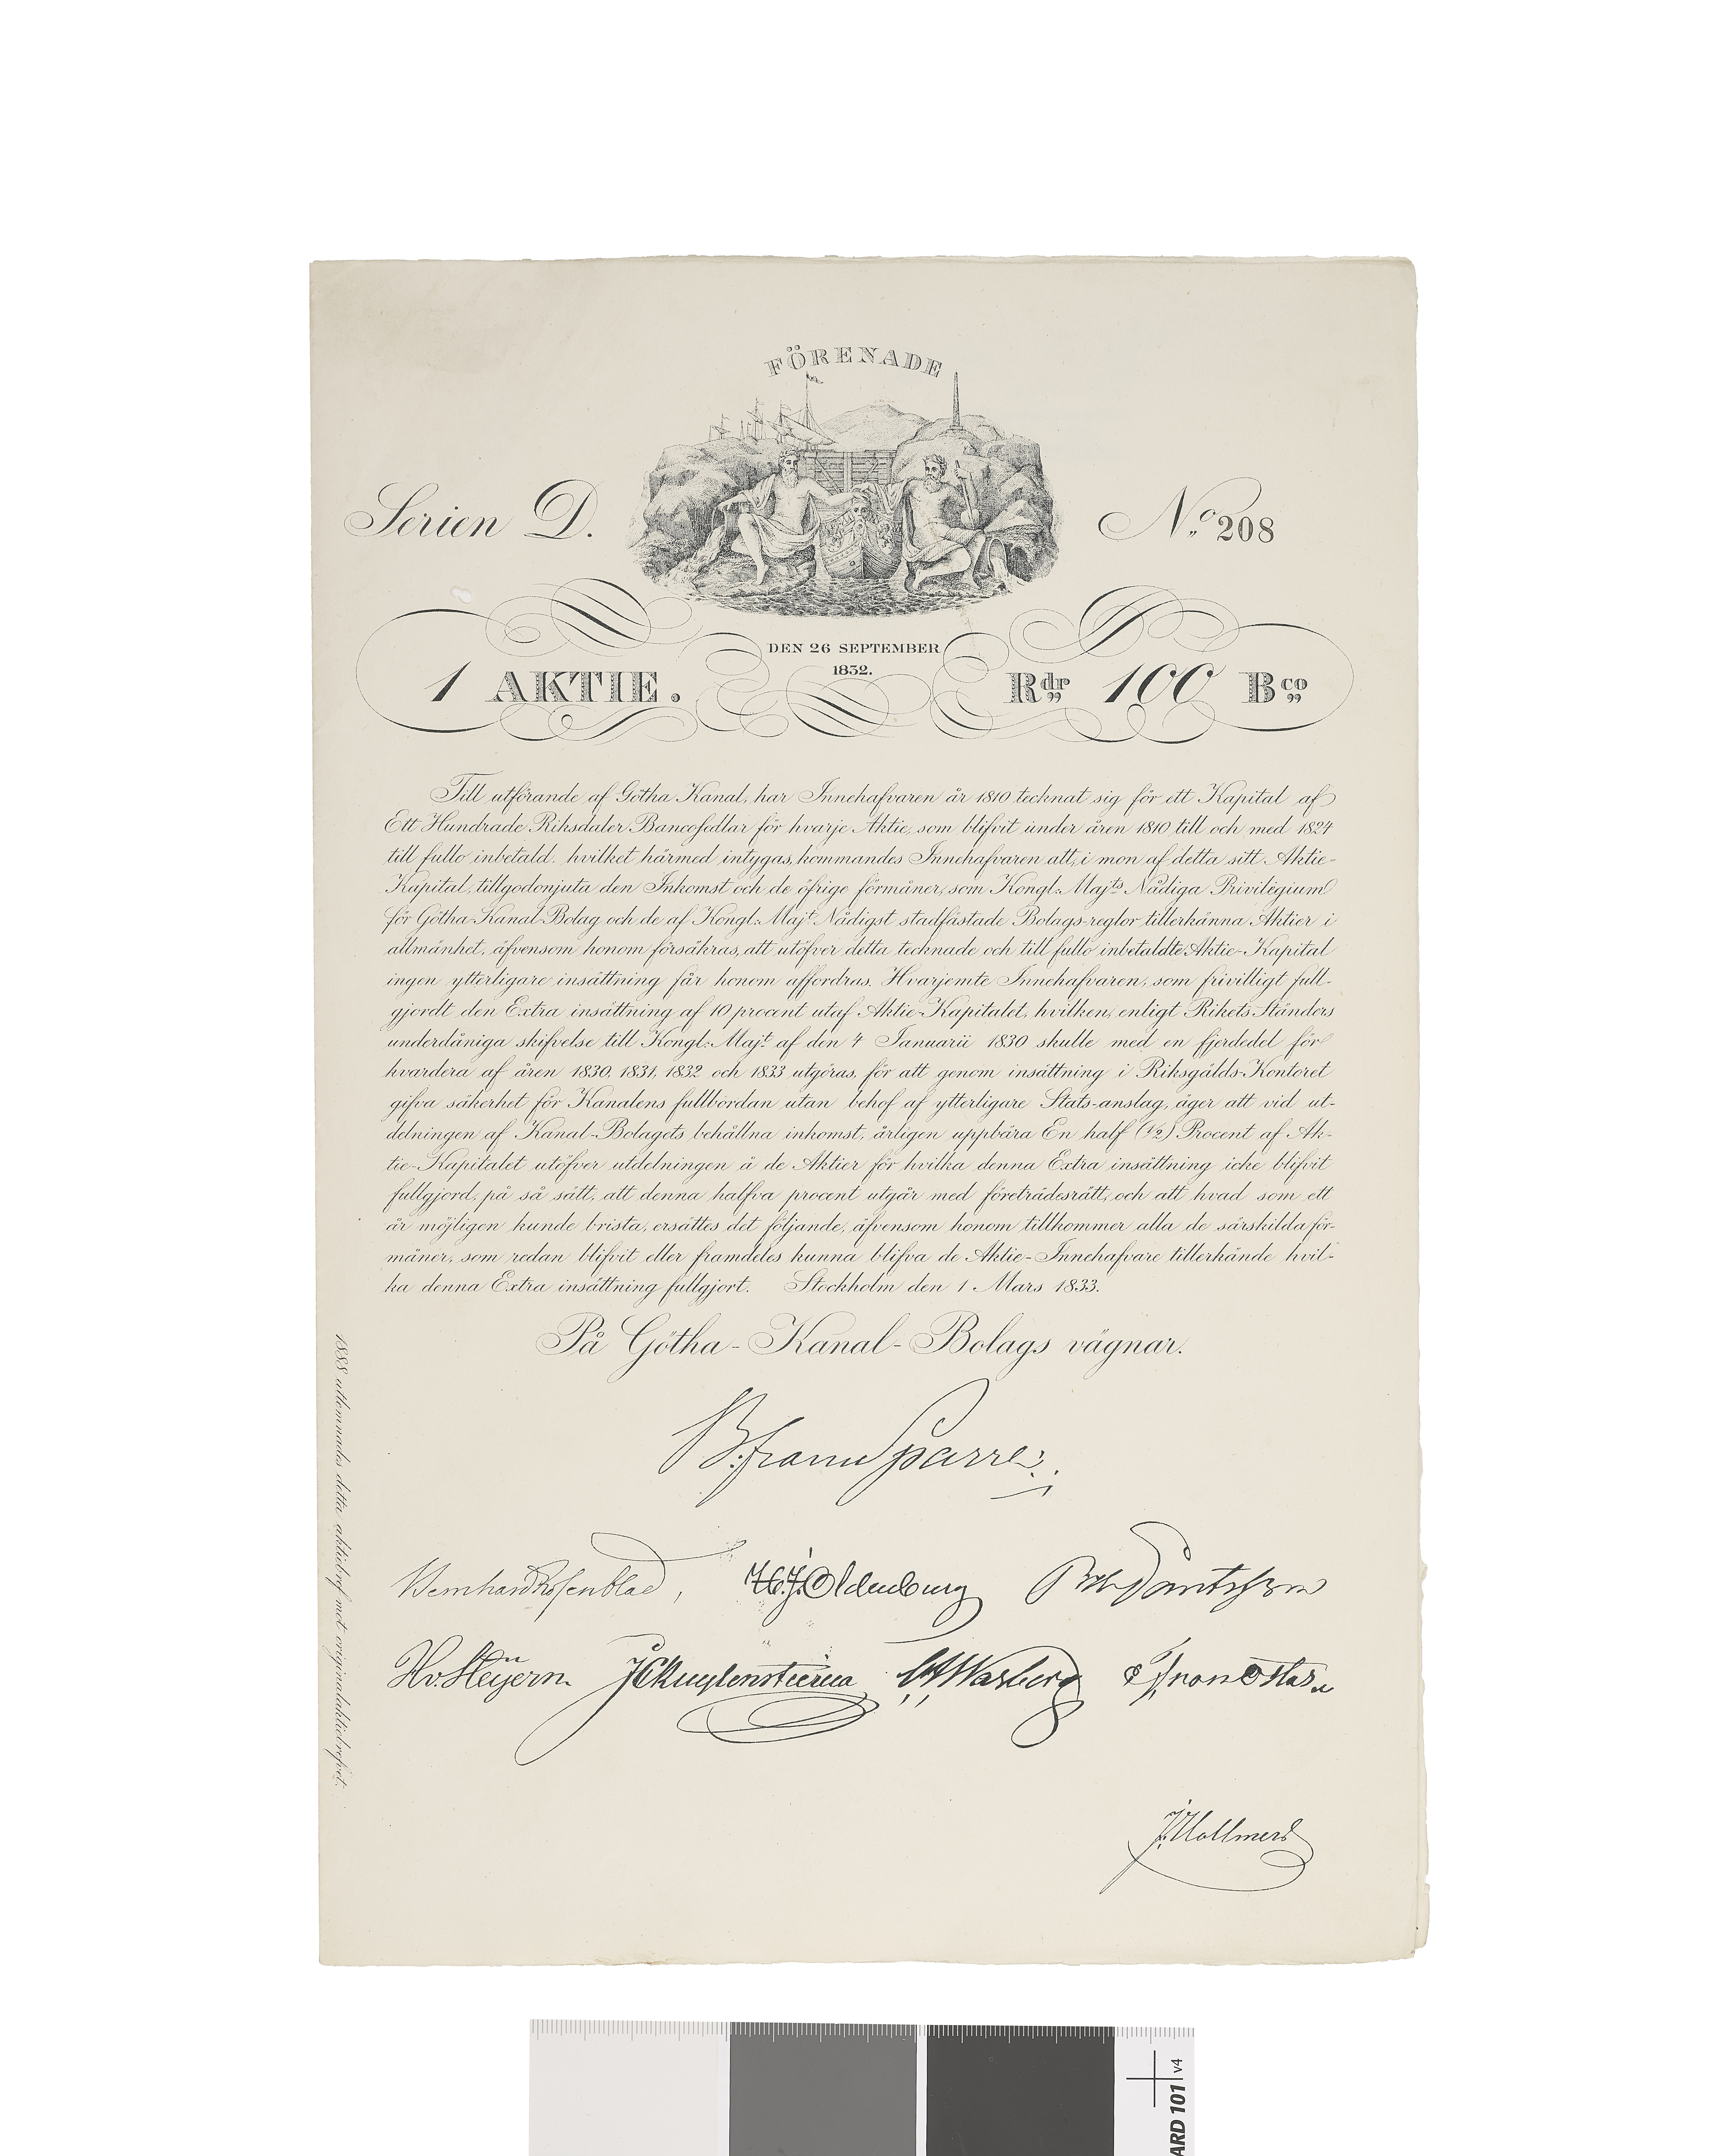 FÖRENADE
Serien D.
No. 208
DEN 26 SEPTEMBER
1832.
1 AKTIE.
Rdr 100 Bco
Till utförande af Götha Kanal, har Innehafvaren år 1810 tecknat sig för ett Kapital af
Ett Hundrade Riksdaler Bancosedlar för hvarje Aktie, som blifvit under åren 1810 till och med 1824
till fullo inbetald. hvilket härmed intygas, kommandes Innehafvaren att, i mon af detta sitt Aktie-
Kapital, tillgodonjuta den Inkomst och de öfrige förmåner, som Kongl: Majts Nådiga Privilegium
för Götha Kanal-Bolag och de af Kongl: Majt Nådigst stadfästade Bolags-reglor tillerkänna Aktier i
allmänhet, äfvensom honom försäkras, att utöfver detta tecknade och till fullo inbetaldte Aktie-Kapital
ingen ytterligare insättning får honom affordras. Hvarjemte Innehafvaren, som frivilligt full-
gjordt den Extra insättning af 10 procent utaf Aktie-Kapitalet, hvilken, enligt Rikets Ständers
underdåniga skifvelse till Kongl: Majt af den 4 Januarii 1830 skulle med en fjerdedel för
hvardera af åren 1830, 1831, 1832 och 1833 utgöras, för att genom insättning i Riksgälds-Kontoret
gifva säkerhet för Kanalens fullbordan utan behof af ytterligare Stats-anslag, äger att vid ut-
delningen af Kanal-Bolagets behållna inkomst, årligen uppbära En half (1/2) Procent af Ak-
tie-Kapitalet utöfver utdelningen å de Aktier för hvilka denna Extra insättning icke blifvit
fullgjord, på så sätt, att denna halfva procent utgår med företrädesrätt, och att hvad som ett
år möjligen kunde brista, ersättes det följande, äfvensom honom tillkommer alla de särskilda för-
måner, som redan blifvit eller framdeles kunna blifva de Aktie-Innehafvare tillerkände hvil-
ka denna Extra insättning fullgjort. Stockholm den 1 Mars 1833.
På Götha-Kanal-Bolags vägnar.
B. von Sparre.
Bernhard Rosenblad, H. J. Oldenburg
H. v. Heijern. J C Kuylenstierna Warberg
J. Hallmers
1888 utlemnades detta aktiebref mot originalaktiebrefvet.
ARD 101 v4